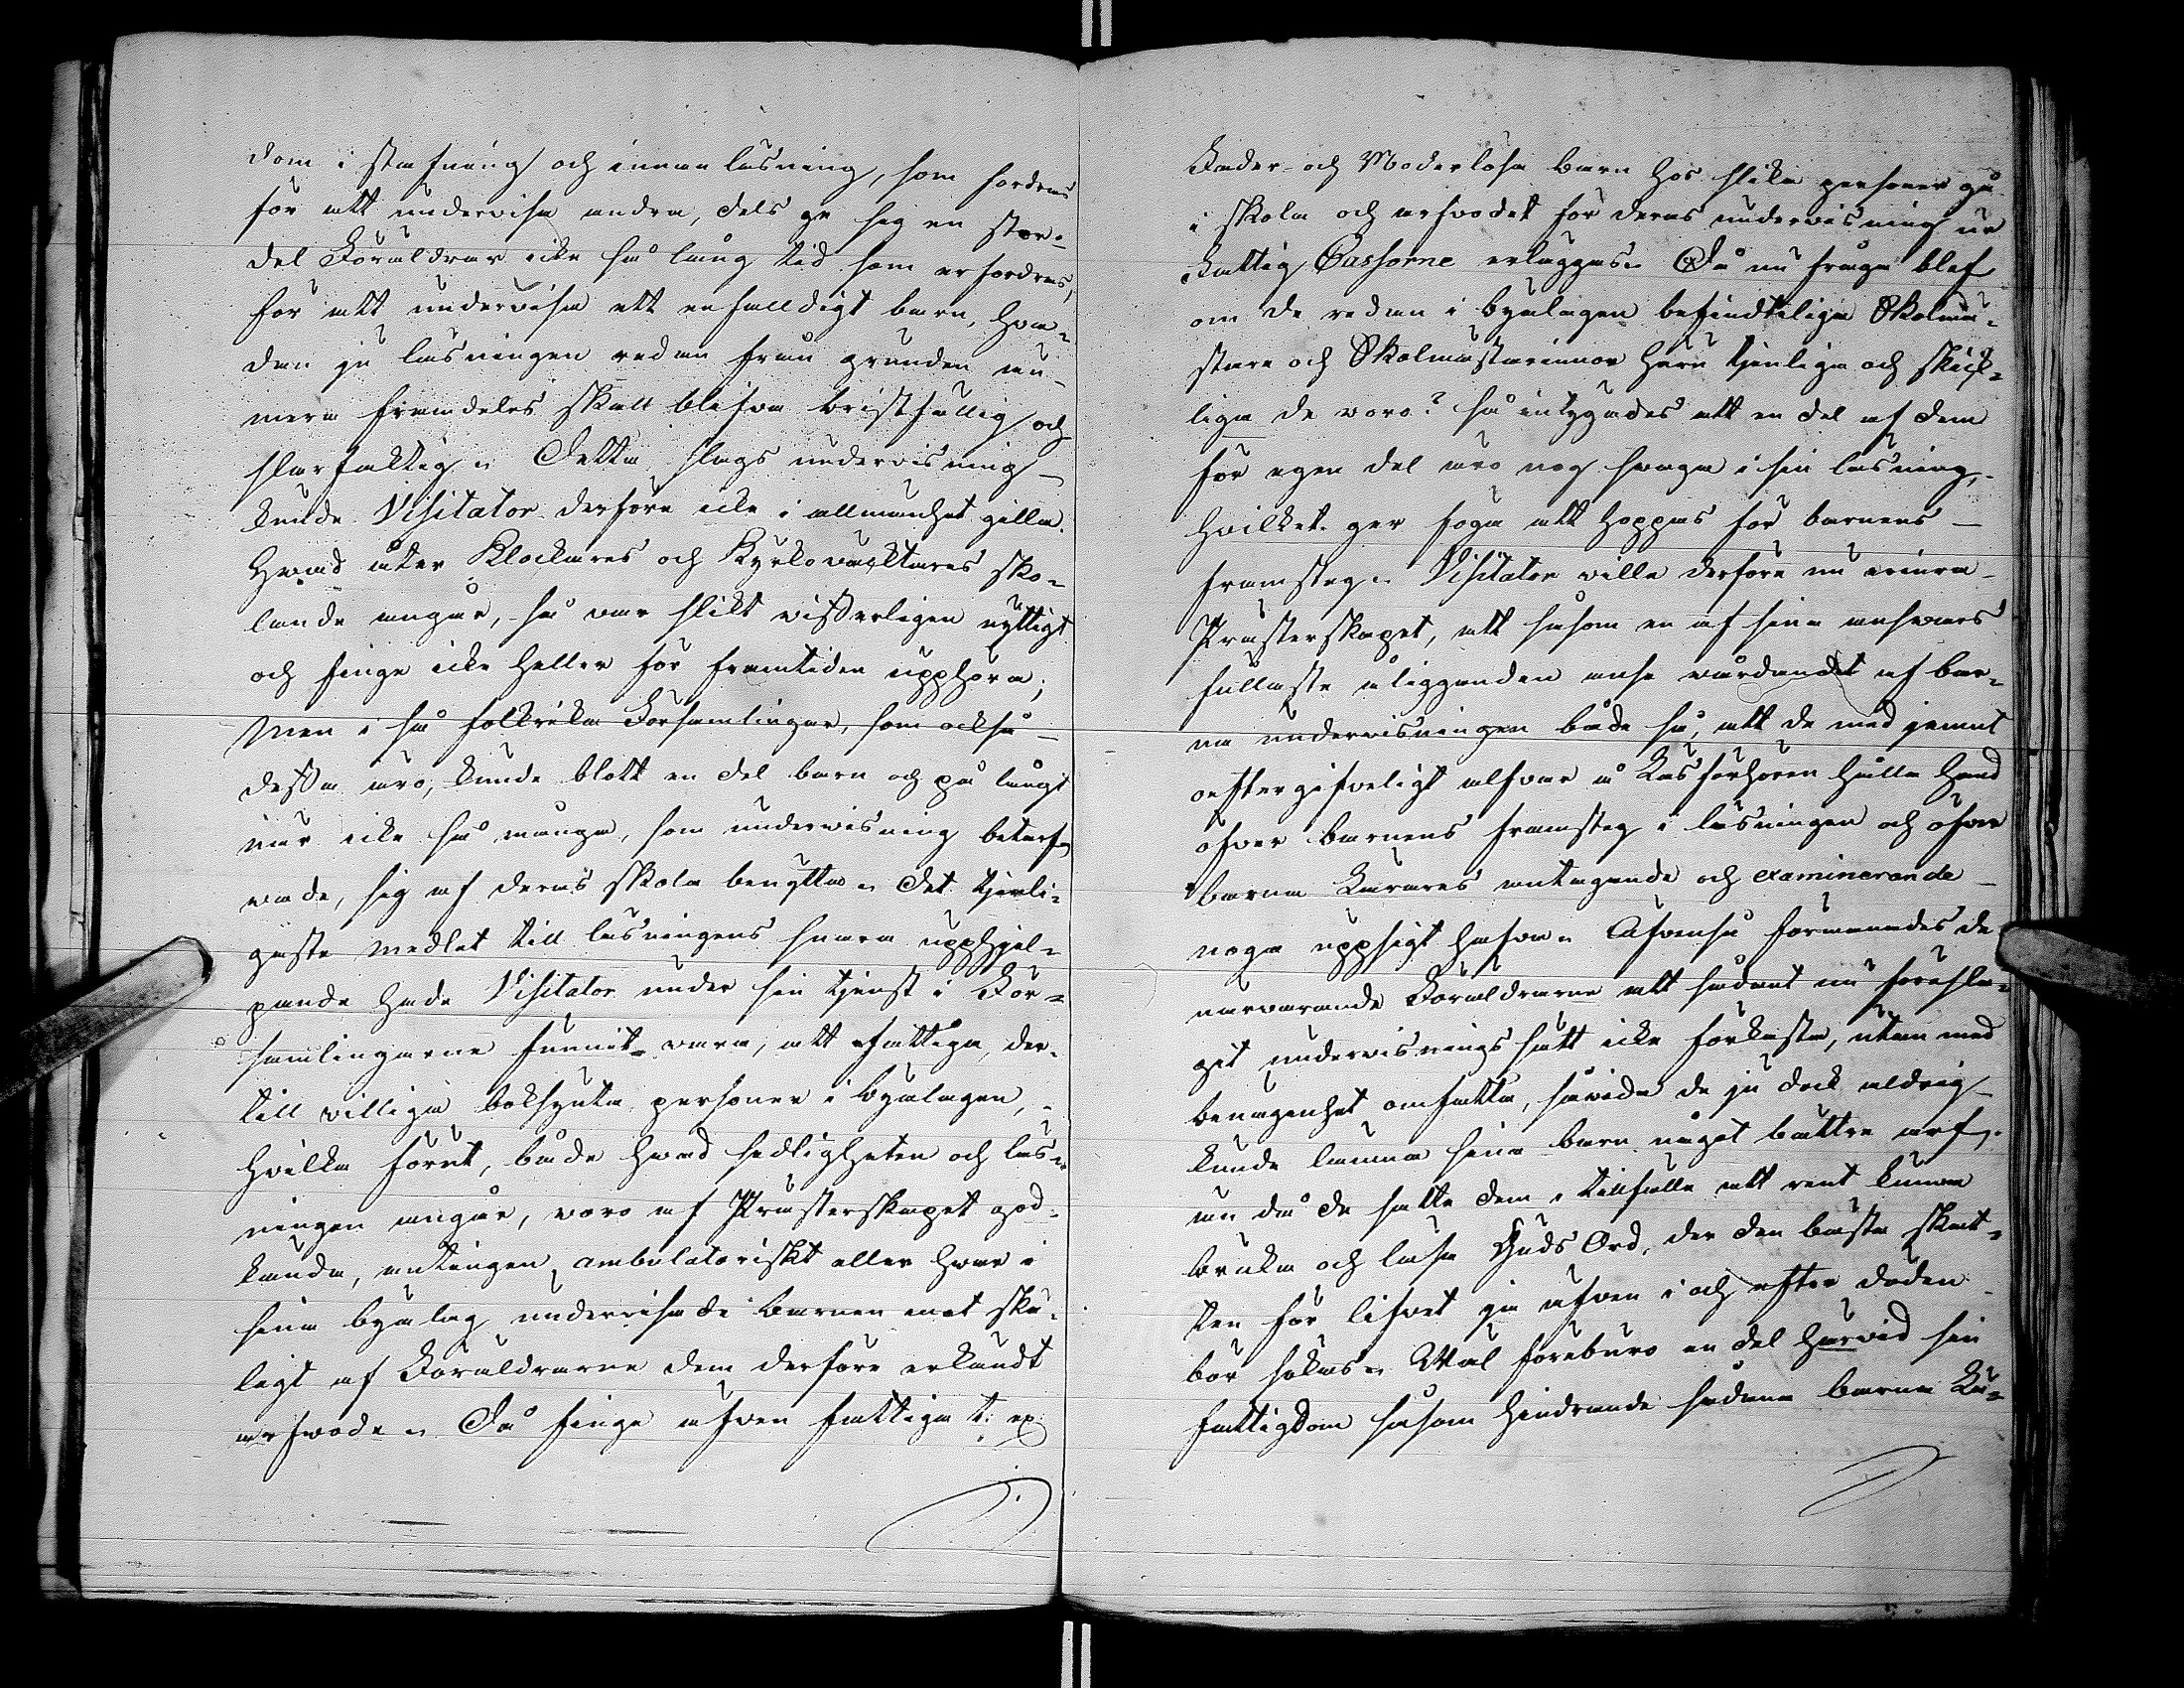 dom i stafning och innanläsning, som fordras
för att undervisa andra, dels ge sig en stor
del Föräldrar icke så lång tid som erfordras,
för att undervisa ett enfalldigt barn, hva-
dan ju läsningen redan från grunden nu-
mera framdeles skall blifva bristfällig och
slarfaktig. Detta slags undervisning
kunde Visitator derföre icke i allmänhet gilla.
Hvad åter Klockares och Kyrkovacktares sko-
lande angår, så var slikt visserligen nyttigt
och finge icke heller för framtiden upphöra;
Men i så folkrika Församlingar, som också
dessa äro, kunde blott en del barn och på långt
när icke så många, som undervisning betarf-
vade, sig af deras skola benytta. Det tjenli-
gaste medlet till läsningens snara upphjel-
pande hade Visitator under sin tjenst i För-
samlingarne funnit vara, att fattiga, der-
till villiga boksynta personer i byalagen,
hvilka förut, både hvad sedligheten och läs-
ningen angår, voro af Prästerskapet god-
kända, antingen ambulatoriskt eller hvar i
sina byalag undervisade barnen mot skä-
ligt af Föräldrarne dem derföre erkändt
arfvode. Då finge äfven fattiga t: ex:
Fader- och Moderlösa barn hos slika personer gå
i skola och arfvodet för deras undervisning ur
Fattig Cassorne erläggas. Då nu fråga blef
om de redan i byalagen befindtliga Skolmä-
stare och Skolmästarinnor huru tjenliga och skick-
liga de voro? så intygades att en del af dem
för egen del äro nog svaga i sin läsning,
hvilket ger föga att hoppas för barnens
framsteg. Visitator ville derföre nu erinra
Prästerskapet, att såsom en af sina ansvars
fullaste åligganden anse vårdandet af bar-
na undervisningen både så, att de med jemnt
oeftergifveligt alfvar å Läsförhören hålla hand
öfver barnens framsteg i läsningen och öfver
barna Lärares antagande och examinerande
noga uppsigt hafva. Äfvenså förmanades de
närvarande Föräldrarne att sådant nu föresla-
git undervisningssätt icke förkasta, utan med
benägenhet omfatta, såvida de ju dock aldrig
kunde lämna sina barn något bättre arf,
än då de satte dem i tillfälle att rent kunna
bruka och läsa Guds Ord, der den bästa skat-
ten för lifvet ja äfven i och efter döden
bör sökas. Wäl föreburo en del härvid sin
fattigdom såsom hindrande sådana barna Lä-